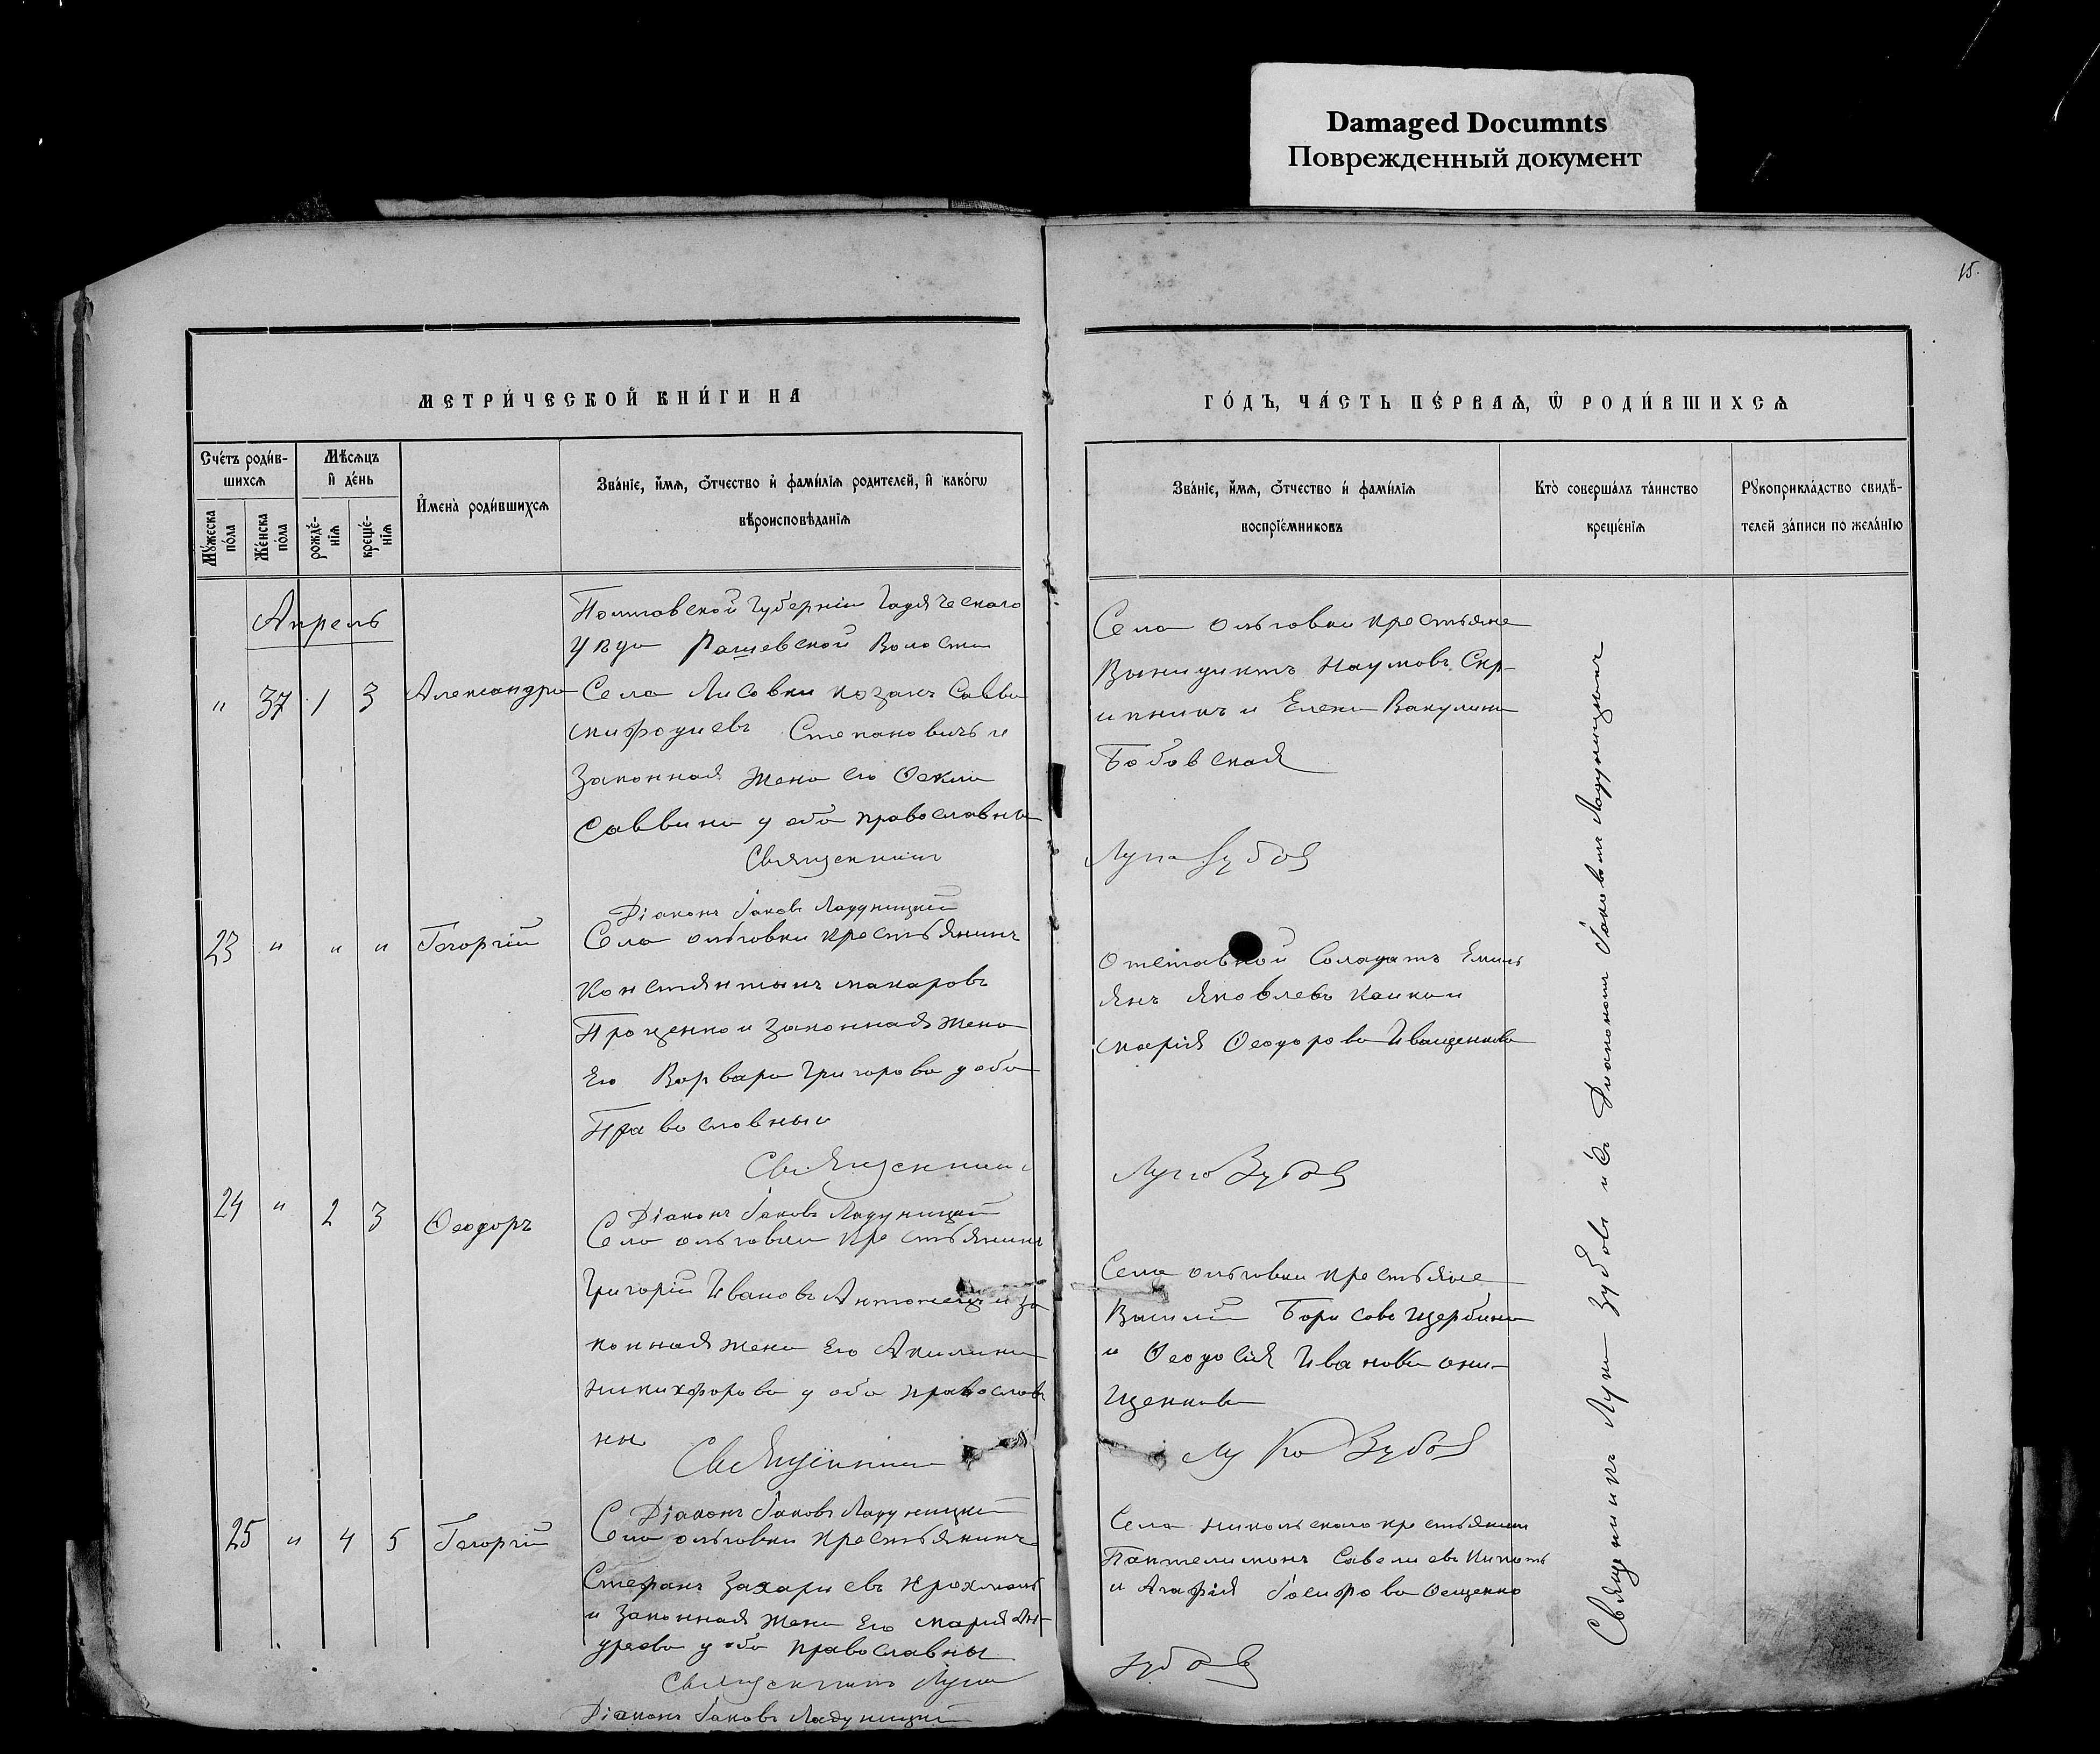 Damaged Documnts
Поврежденный документ
15.
МЕТРИ́ЧЕСКОЙ КНИ́ГИ НА
ГО́ДЪ, ЧА́СТЬ ПЕ́РВАЯ, Ѿ РОДИ́ВШИХСѦ
Сче́тъ роди́в-
шихсѧ
Мѣ́сѧцъ
и҆ де́нь
Мꙋ́жеска по́ла
Же́нска по́ла
рожде́-
нїѧ
креще́-
нїѧ
И҆мена̀ роди́вшихсѧ
Зва́нїе, и҆́мѧ, ѻ҆́тчество и҆ фами́лїѧ роди́телей, и҆ како́гѡ
вѣроисповѣ́данїѧ
Зва́нїе, и҆́мѧ, ѻ҆́тчество и҆ фами́лїѧ
воспрїе́мниковъ
Кто̀ соверша́лъ та́инство
креще́нїѧ
Рꙋкоприкла́дство свидѣ́-
телей за́писи по жела́нїю
Апрель
Полтавской Губерніи Гадяческаго
Уѣзда Рашевской Волости
" 37 1 3 Александра Села Лисовки козакъ Савва
Мифодиевъ Степановичъ и
Законная Жена его
Саввина у оба православны
Священникъ
Діаконъ Іаковъ Ладуницкій
Села Ольговки крестьяне
Наумовъ Скр-
ипникъ и Елена Вакулина
Бобовская
Лука Зубовъ
23 " " " Георгій Села Ольговки крестьянинъ
Константинъ Макаровъ
Проценко и Законная Жена
Его Варвара Григорова у оба
Православныи
Священникъ
Діаконъ Іаковъ Ладуницкій
Отставной Солдатъ Емель
янъ Яковлевъ
Марія Ѳеодорова Иващенкова
Лука Зубовъ
24 " 2 3 Ѳеодоръ Села Ольговки Крестьянинъ
Григорій Ивановъ Антонецъ и за
конная Жена Его Акилина
Никифорова у оба православ
ны
Священникъ
Діаконъ Іаковъ Ладуницкій
Села Ольговки крестьяне
Василій Борисовъ Щербина
и Ѳеодосія Иванова Они-
щенкова
Лука Зубовъ
25 " 4 5 Георгій Села Ольговки Крестьянинъ
Стефанъ Захариевъ Крохмаль
и Законная Жена Его Марія Ан-
дреева у оба православны
Священникъ Лука
Діаконъ Іаковъ Ладуницкій
Села Никольскаго крестьяне
Пантелимонъ Савелиевъ
и Агафія Іосифова
Зубовъ
Священникъ Лука Зубовъ и съ Диакономъ Іаковомъ Ладуницкимъ